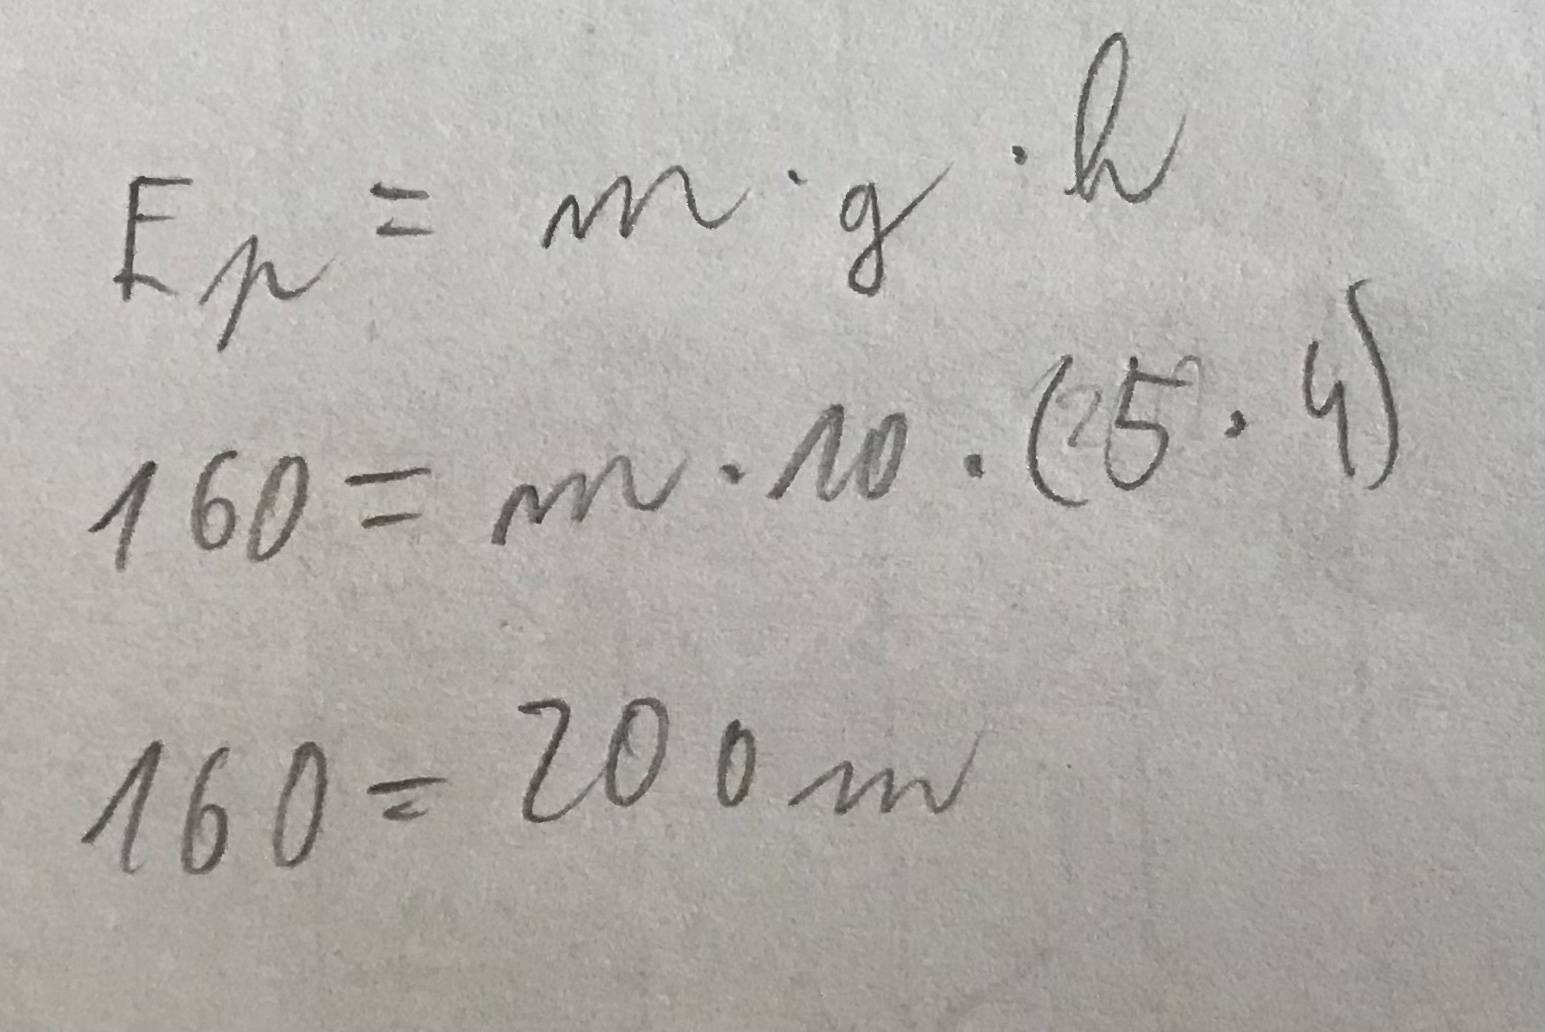 Ep = m · g · h
160 = m · 10 · (5 · 4)
160 = 200 m